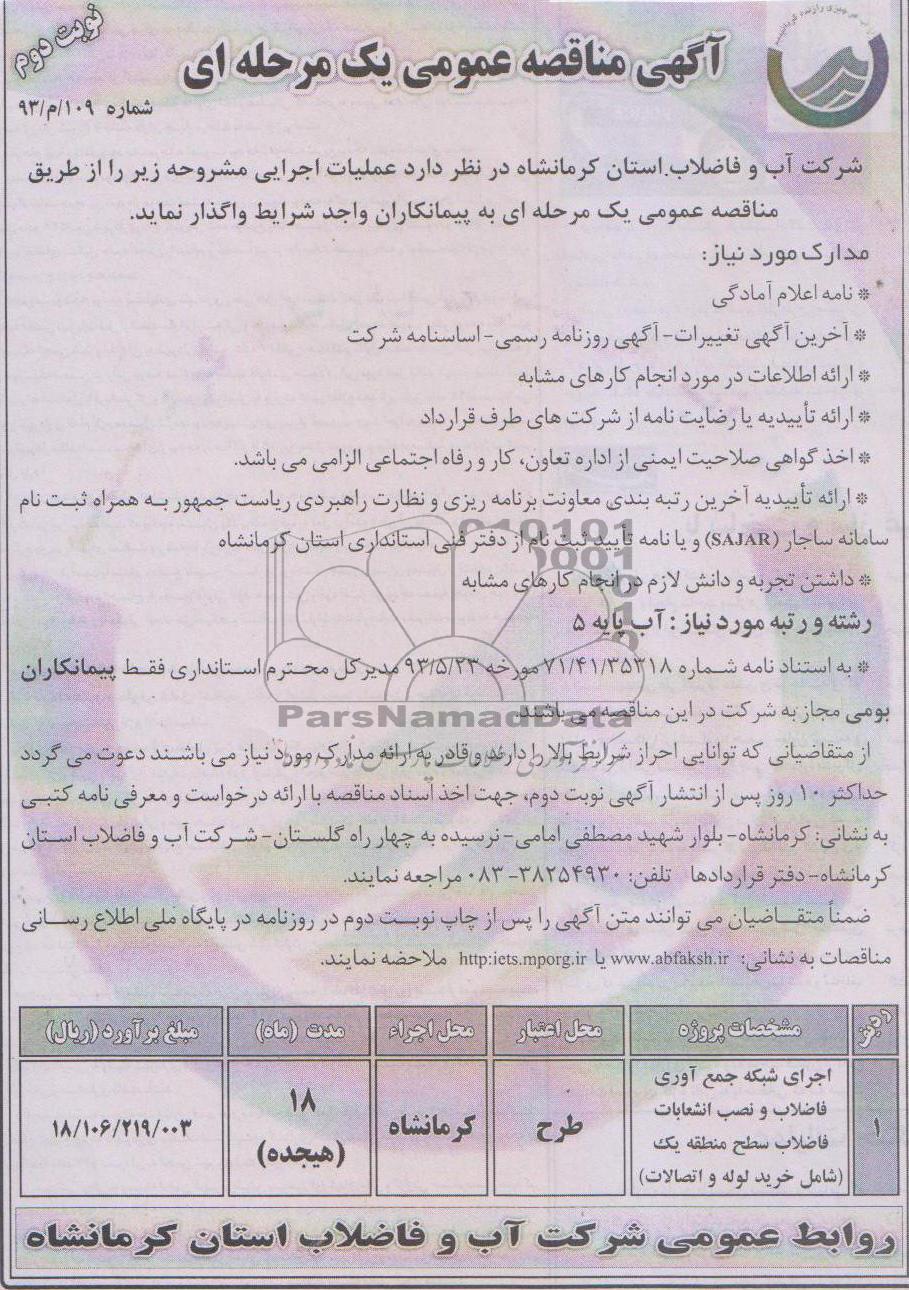 نوبت دوم
آگهی مناقصه عمومی یک مرحله ای
شماره ۱۰۹/م/۹۳
شرکت آب و فاضلاب استان کرمانشاه در نظر دارد عملیات اجرایی مشروحه زیر را از طریق
مناقصه عمومی یک مرحله ای به پیمانکاران واجد شرایط واگذار نماید.
مدارک مورد نیاز:
* نامه اعلام آمادگی
* آخرین آگهی تغییرات- آگهی روزنامه رسمی- اساسنامه شرکت
* ارائه اطلاعات در مورد انجام کارهای مشابه
* ارائه تأییدیه یا رضایت نامه از شرکت های طرف قرارداد
* اخذ گواهی صلاحیت ایمنی از اداره تعاون، کار و رفاه اجتماعی الزامی می باشد.
* ارائه تأییدیه آخرین رتبه بندی معاونت برنامه ریزی و نظارت راهبردی ریاست جمهور به همراه ثبت نام
سامانه ساجار (SAJAR) و یا نامه تأیید ثبت نام از دفتر فنی استانداری استان کرمانشاه
* داشتن تجربه و دانش لازم در انجام کارهای مشابه
رشته و رتبه مورد نیاز: آب پایه ۵
* به استناد نامه شماره ۷۱/۴۱/۳۵۳۱۸ مورخه ۹۳/۵/۲۳ مدیرکل محترم استانداری فقط پیمانکاران
بومی مجاز به شرکت در این مناقصه می باشند.
ParsNamadData
از متقاضیانی که توانایی احراز شرایط بالا را دارند و قادر به ارائه مدارک مورد نیاز می باشند دعوت می گردد
حداکثر ۱۰ روز پس از انتشار آگهی نوبت دوم، جهت اخذ اسناد مناقصه با ارائه درخواست و معرفی نامه کتبی
به نشانی: کرمانشاه- بلوار شهید مصطفی امامی- نرسیده به چهار راه گلستان- شرکت آب و فاضلاب استان
کرمانشاه- دفتر قراردادها تلفن: ۳۸۲۵۴۹۳۰-۰۸۳ مراجعه نمایند.
ضمناً متقاضیان می توانند متن آگهی را پس از چاپ نوبت دوم در روزنامه در پایگاه ملی اطلاع رسانی
مناقصات به نشانی: www.abfaksh.ir یا http:iets.mporg.ir ملاحضه نمایند.
ردیف مشخصات پروژه محل اعتبار محل اجراء مدت (ماه) مبلغ برآورد (ریال)
۱ اجرای شبکه جمع آوری فاضلاب و نصب انشعابات فاضلاب سطح منطقه یک (شامل خرید لوله و اتصالات) طرح کرمانشاه ۱۸ (هیجده) ۱۸/۱۰۶/۲۱۹/۰۰۳
روابط عمومی شرکت آب و فاضلاب استان کرمانشاه